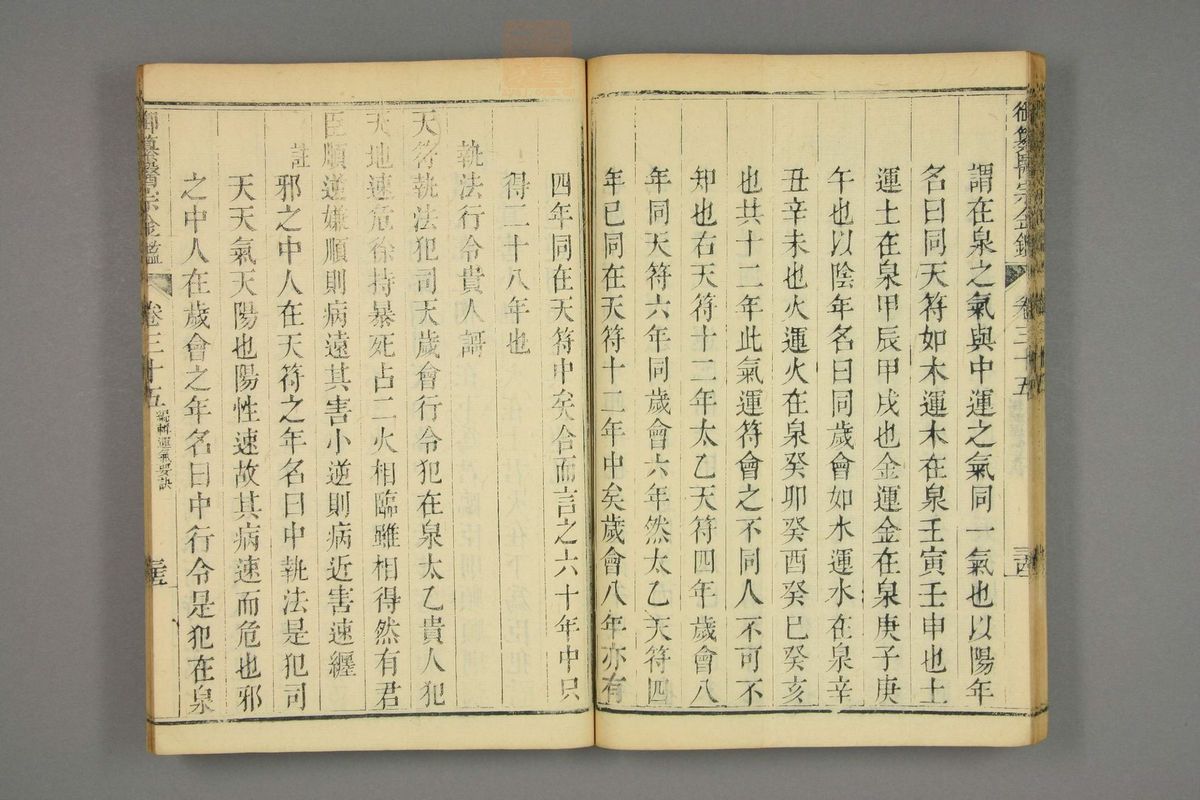 御纂醫宗金鑑 卷三十五 三四
謂在泉之氣與中運之氣同一氣也以陽年
名曰同天符如木運木在泉壬寅壬申也土
運土在泉甲辰甲戌也金運金在泉庚子庚
午也以陰年名曰同歲會如水運水在泉辛
丑辛未也火運火在泉癸卯癸酉癸巳癸亥
也共十二年此氣運符會之不同人不可不
知也右天符十二年太乙天符四年歲會八
年同天符六年同歲會六年然太乙天符四
年已同在天符十二年中矣歲會八年亦有
四年同在天符中矣合而言之六十年中只
得二十八年也
執法行令貴人謌
天符執法犯司天歲會行令犯在泉太乙貴人犯
天地速危徐持暴死占二火相臨雖相得然有君
臣順逆嫌順則病遠其害小逆則病近害速纏
註邪之中人在天符之年名曰中執法是犯司
天天氣天陽也陽性速故其病速而危也邪
之中人在歲會之年名曰中行令是犯在泉
御纂醫宗金鑑 卷三十五 編輯運氣要訣 三五